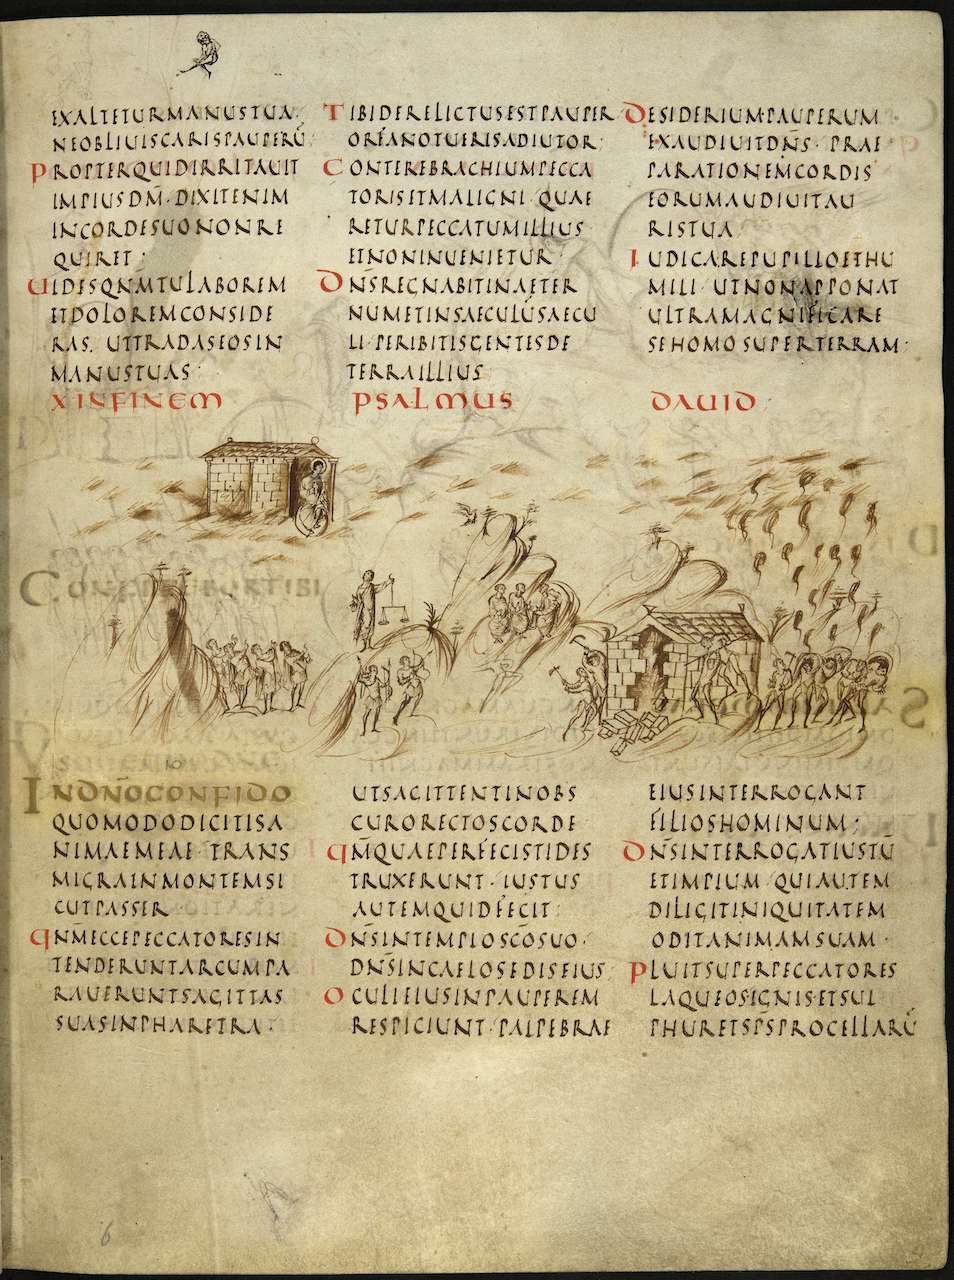 EXALTETURMANUSTUA.
NEOBLIUISCARISPAUPERŪ
PROPTERQUIDIRRITAUIT
IMPIUSDM̄· DIXITENIM
INCORDESUONONRE
QUIRET·
UIDESQNM̄TULABOREM
ETDOLOREMCONSIDE
RAS. UTTRADASEOSIN
MANUSTUAS·
TIBIDERELICTUSESTPAUPER
ORFANOTUERISADIUTOR·
CONTEREBRACHIUMPECCA
TORISETMALIGNI· QUAE
RETURPECCATUMILLIUS
ETNONINUENIETUR·
DN̄SREGNABITINAETER
NUMETINSAECULŪSAECU
LI· PERIBITISGENTESDE
TERRAILLIUS
DESIDERIUMPAUPERUM
EXAUDIUITDN̄S· PRAE
PARATIONEMCORDIS
EORUMAUDIUITAU
RISTUA
IUDICAREPUPILLOETHU
MILI· UTNONAPPONAT
ULTRAMAGNIFICARE
SEHOMOSUPERTERRAM·
XINFINEM PSALMUS DAUID
10
INDN̄OCONFIDO
QUOMODODICITISA
NIMAEMEAE TRANS
MIGRAINMONTEMSI
CUTPASSER
QNM̄ECCEPECCATORESIN
TENDERUNTARCUMPA
RAUERUNTSAGITTAS
SUASINPHARETRA·
UTSAGITTENTINOBS
CURORECTOSCORDE
QMQUAEPERFECISTIDES
TRUXERUNT· IUSTUS
AUTEMQUIDFECIT·
DN̄SINTEMPLOSCŌSUO·
DN̄SINCAELOSEDISEIUS
OCULIEIUSINPAUPEREM
RESPICIUNT· PALPEBRAE
EIUSINTERROGANT
FILIOSHOMINUM·
DN̄SINTERROGATIUSTŪ
ETIMPIUM QUIAUTEM
DILIGITINIQUITATEM
ODITANIMAMSUAM·
PLUITSUPERPECCATORES
LAQUEOSIGNIS·ETSUL
PHURETSPS̄PROCELLARŪ
6